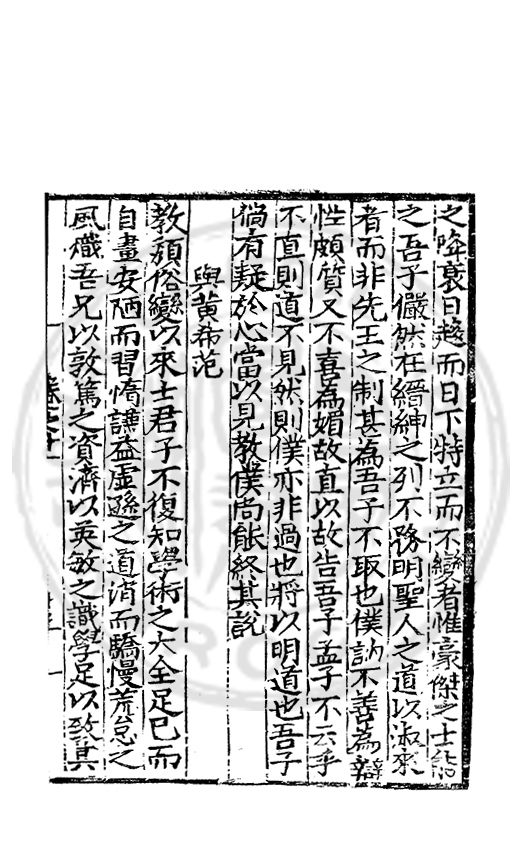 之降衰日趨而日下特立而不變者惟豪傑之士能
之吾子儼然在縉紳之列不務明聖人之道以淑來
者而非先王之制甚為吾子不取也僕訥不善為辯
性頗質又不喜為媚故直以故告吾子孟子不云乎
不直則道不見然則僕亦非過也將以明道也吾子
倘有疑於心當以見教僕尚能終其說
與黃希范
教頹俗變以來士君子不復知學術之大全足已而
自畫安陋而習惰謙益虛遜之道消而驕慢荒怠之
風熾吾兄以敦篤之資濟以英敏之識學足以致其